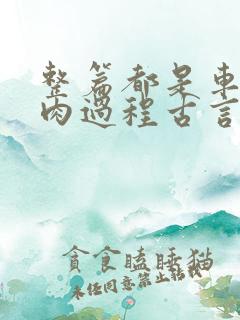 整篇都是車
肉過程古言
貪食瞌睡猫
未经同意禁止转载